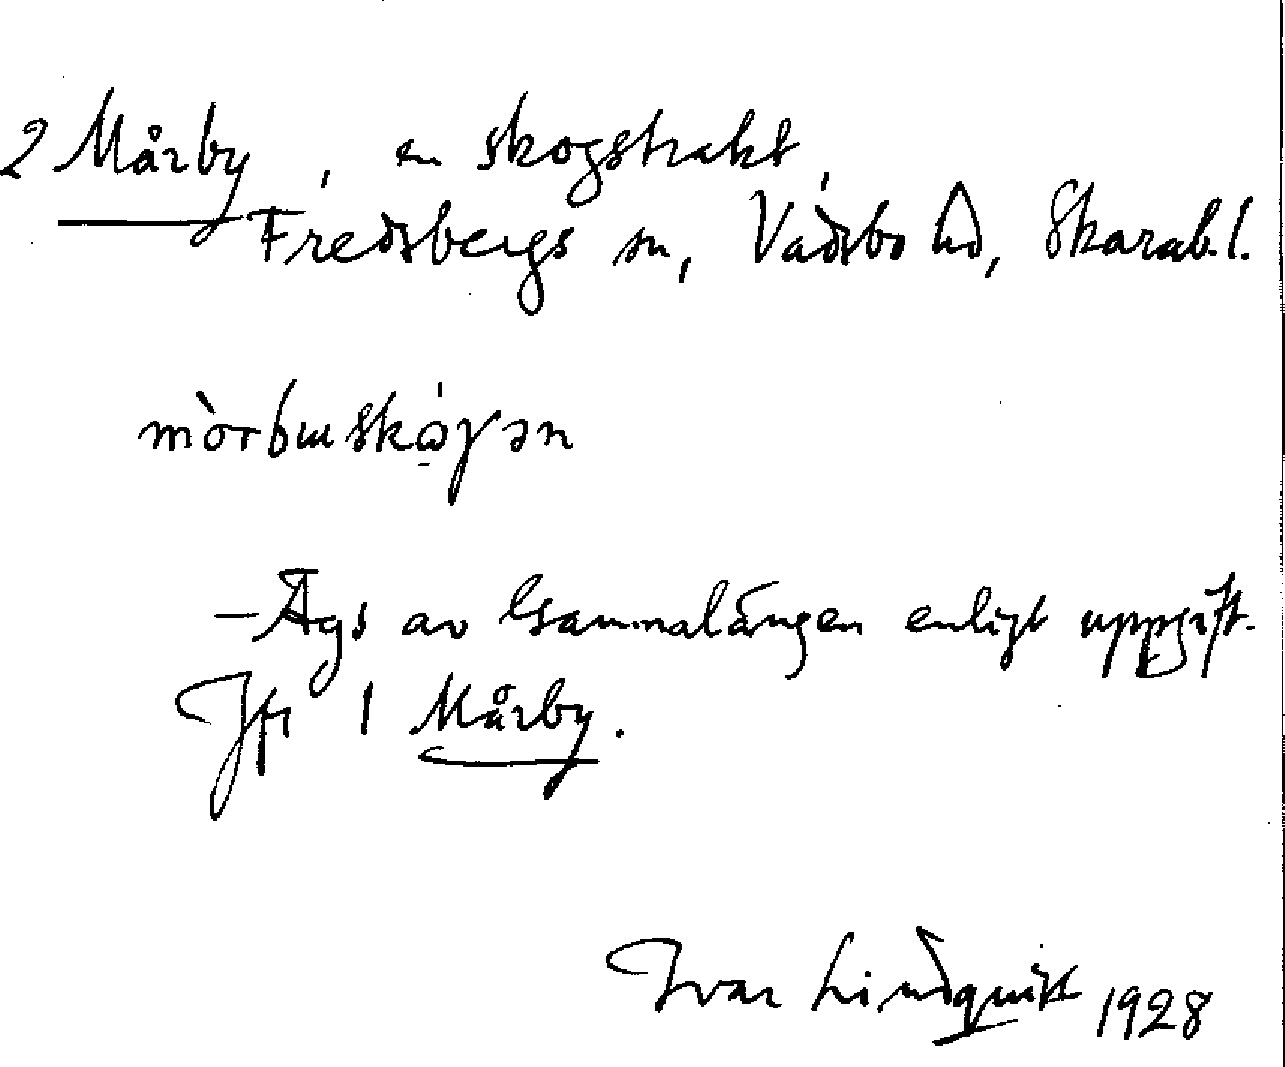 2 Mårby, en skogstrakt,
Fredsbergs sn, Vadsbo hd, Skarab.l.
mòrbɯskóɣən
– Ägs av Gammalängen enligt uppgift.
Jfr 1 Mårby.
Ivar Lindquist 1928